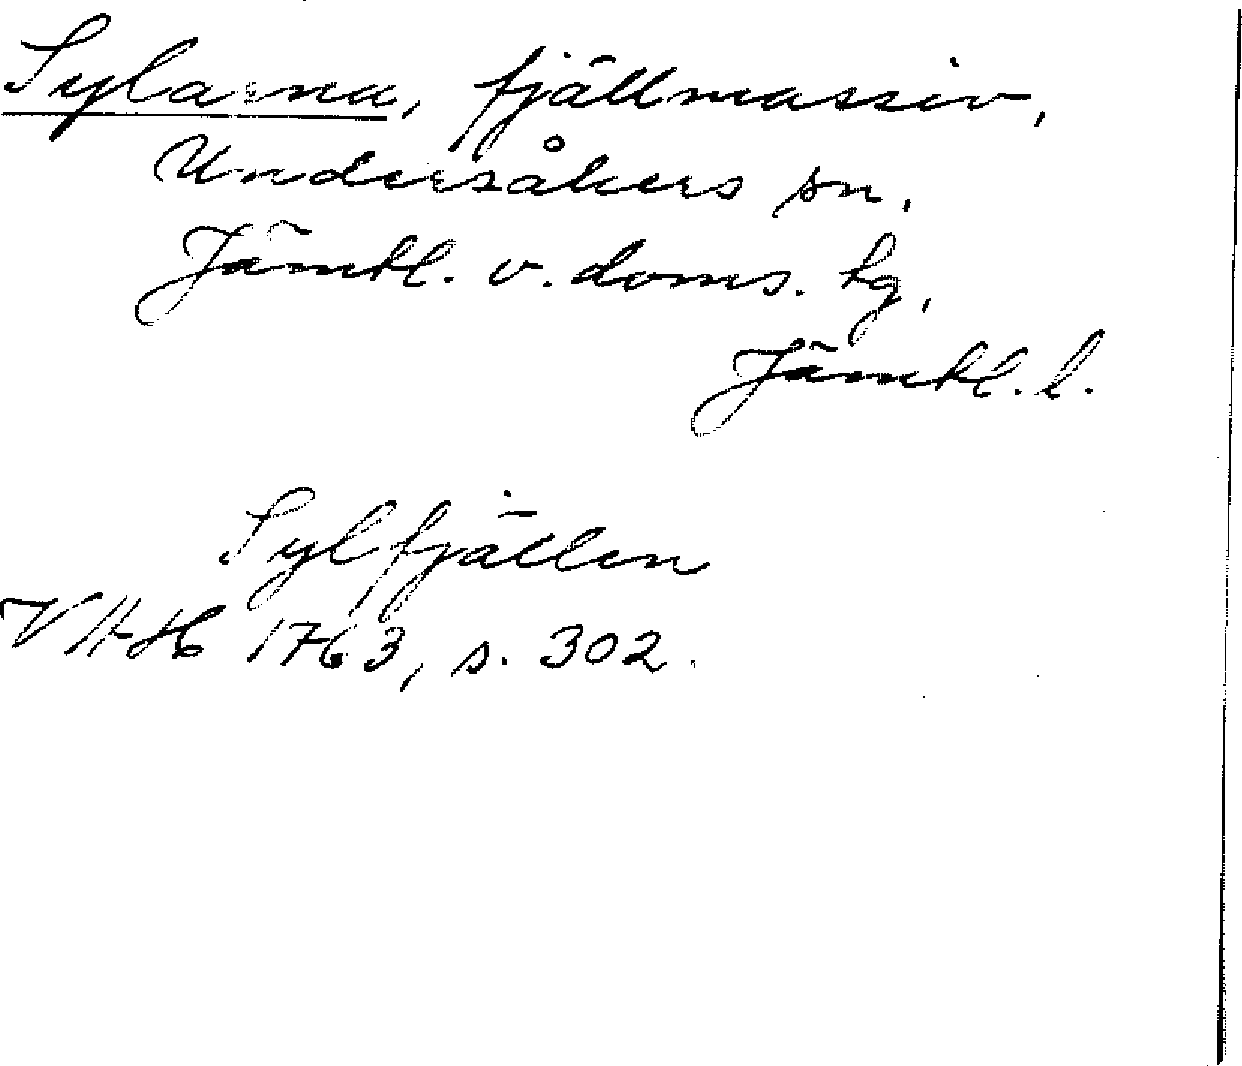 Sylarna, fjällmassiv,
Undersåkers sn,
Jämtl. v. doms. tg,
Jämtl. l.
Sylfjällen
VHAH 1763, s. 302.